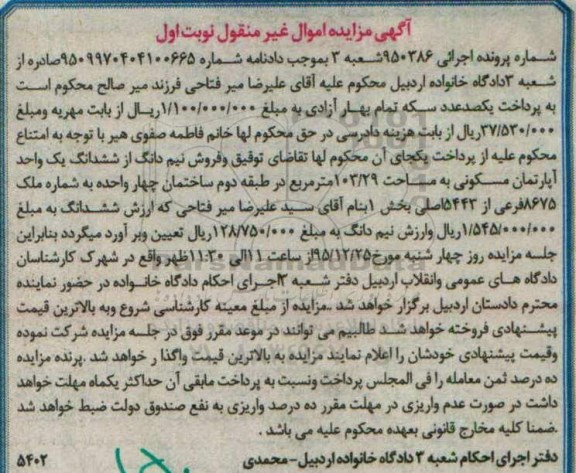 آگهی مزایده اموال غیر منقول نوبت اول
شماره پرونده اجرائی ۹۵۰۳۸۶شعبه ۳ بموجب دادنامه شماره ۹۵۰۹۹۷۰۴۰۴۱۰۰۶۶۵صادره از
شعبه ۳دادگاه خانواده اردبیل محکوم علیه آقای علیرضا میر فتاحی فرزند میر صالح محکوم است
به پرداخت یکصدعدد سکه تمام بهار آزادی به مبلغ ۱/۱۰۰/۰۰۰/۰۰۰ریال از بابت مهریه ومبلغ
۳۷/۵۳۰/۰۰۰ریال از بابت هزینه دادرسی در حق محکوم لها خانم فاطمه صفوی هیر با توجه به امتناع
محکوم علیه از پرداخت یکجای آن محکوم لها تقاضای توقیق وفروش نیم دانگ از ششدانگ یک واحد
آپارتمان مسکونی به مساحت ۱۰۳/۲۹مترمربع در طبقه دوم ساختمان چهار واحده به شماره ملک
۸۶۷۵فرعی از ۵۴۴۳اصلی بخش ۱بنام آقای سید علیرضا میر فتاحی که ارزش ششدانگ به مبلغ
۱/۵۴۵/۰۰۰/۰۰۰ریال وارزش نیم دانگ به مبلغ ۱۲۸/۷۵۰/۰۰۰ریال تعیین وبر آورد میگردد بنابراین
جلسه مزایده روز چهار شنبه مورخ۹۵/۱۲/۲۵از ساعت ۱۱الی ۱۱:۳۰ظهر واقع در شهرک کارشناسان
دادگاه های عمومی وانقلاب اردبیل دفتر شعبه ۳اجرای احکام دادگاه خانواده در حضور نماینده
محترم دادستان اردبیل برگزار خواهد شد .مزایده از مبلغ معینه کارشناسی شروع وبه بالاترین قیمت
پیشنهادی فروخته خواهد شد طالبیم می توانند در موعد مقرر فوق در جلسه مزایده شرکت نموده
وقیمت پیشنهادی خودشان را اعلام نمایند مزایده به بالاترین قیمت واگذا ر خواهد شد .برنده مزایده
ده درصد ثمن معامله را فی المجلس پرداخت ونسبت به پرداخت مابقی آن حداکثر یکماه مهلت خواهد
داشت در صورت عدم واریزی در مهلت مقرر ده درصد واریزی به نفع صندوق دولت ضبط خواهد شد
.ضمنا کلیه مخارج قانونی بعهده محکوم علیه می باشد .
دفتر اجرای احکام شعبه ۳ دادگاه خانواده اردبیل-محمدی
۵۴۰۲